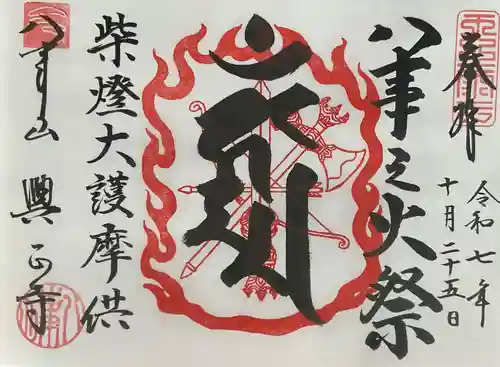 奉拝
令和七年
十月二十五日
八事之火祭
柴燈大護摩供
八事山 興正寺